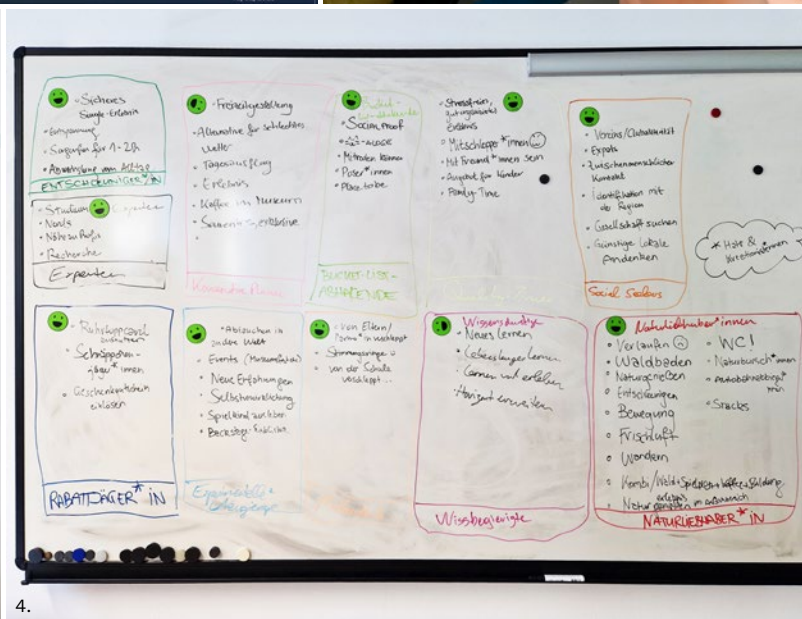 Sicheres
Single-Erlebnis
• Entspannung
• Surfen für 1-2h
• Abwechslung vom Alltag
ENTSCHLEUNIGER*IN
• Studium
Experten
• Nerds
• Nähe zu Profis
• Recherche
Experten
• Freizeitgestaltung
• Alternative für schlechtes
Wetter
• Tagesausflug
• Erlebnis
• Kaffee im Museum
Bucket-
• Social Proof
• Mitreden können
• Poser*innen
• Place-to-be
BUCKET-LIST-
ABHAKENDE
• Stressfrei,
gut organisiertes
Erlebnis
• Mitschlepper*innen
• Mit Freund*innen sein
• Angebot für Kinder
• Family-Time
• Vereins/Clubaktivität
• Expats
• Zwischenmenschlicher
Kontakt
• Identifikation mit
der Region
• Gesellschaft suchen
• Günstige lokale
Andenken
Social Seekers
* Hate &
• Ruhrtoppcard
ausnutzen
• Schnäppchen-
jäger*innen
• Geschenkgutschein
einlösen
RABATTJÄGER*IN
• Abtauchen in
andere Welt
• Events
• Neue Erfahrungen
• Selbstverwirklichung
• Spieltrieb ausleben
• Backstage-Einblicke
• von Eltern/
Partner*in verschleppt
• Stimmungsringe
• von der Schule
verschleppt...
Wissensdurstige
• Neues Lernen
• Lebenslanges Lernen
• Lernen und erleben
• Horizont erweitern
Wissbegierigte
Naturliebhaber*innen
• Verlaufen
• Waldbaden
• Naturgenießen
• Entschleunigen
• Bewegung
• Frischluft
• Wandern
• Kombi/Wald+Spielplatz+Kaffee+Bildung
• WC!
• Naturbursch*innen
• Snacks
NATURLIEBHABER*IN
4.